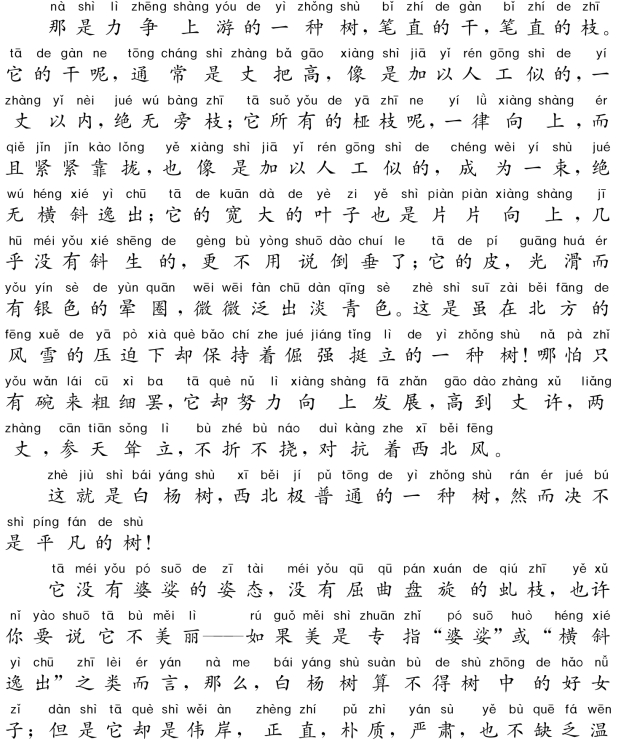 nà shì lì zhēng shàng yóu de yì zhǒng shù bǐ zhí de gàn bǐ zhí de zhī
那是力争上游的一种树,笔直的干,笔直的枝。
tā de gàn ne tōng cháng shì zhàng bǎ gāo xiàng shì jiā yǐ rén gōng shì de yí
它的干呢,通常是丈把高,像是加以人工似的,一
zhàng yǐ nèi jué wú bàng zhī tā suǒ yǒu de yā zhī ne yí lǜ xiàng shàng ér
丈以内,绝无旁枝;它所有的桠枝呢,一律向上,而
qiě jǐn jǐn kào lǒng yě xiàng shì jiā yǐ rén gōng shì de chéng wéi yí shù jué
且紧紧靠拢,也像是加以人工似的,成为一束,绝
wú héng xié yì chū tā de kuān dà de yè zi yě shì piàn piàn xiàng shàng jī
无横斜逸出;它的宽大的叶子也是片片向上,几
hū méi yǒu xié shēng de gèng bù yòng shuō dào chuí le tā de pí guāng huá ér
乎没有斜生的,更不用说倒垂了;它的皮,光滑而
yǒu yín sè de yùn quān wēi wēi fàn chū dàn qīng sè zhè shì suī zài běi fāng de
有银色的晕圈,微微泛出淡青色。这是虽在北方的
fēng xuě de yā pò xià què bǎo chí zhe jué jiáng tǐng lì de yì zhǒng shù nǎ pà zhǐ
风雪的压迫下却保持着倔强挺立的一种树!哪怕只
yǒu wǎn lái cū xì ba tā què nǔ lì xiàng shàng fā zhǎn gāo dào zhàng xǔ liǎng
有碗来粗细罢,它却努力向上发展,高到丈许,两
zhàng cān tiān sǒng lì bù zhé bù náo duì kàng zhe xī běi fēng
丈,参天耸立,不折不挠,对抗着西北风。
zhè jiù shì bái yáng shù xī běi jí pǔ tōng de yì zhǒng shù rán ér jué bú
这就是白杨树,西北极普通的一种树,然而决不
shì píng fán de shù
是平凡的树!
tā méi yǒu pó suō de zī tài méi yǒu qū qū pán xuán de qiú zhī yě xǔ
它没有婆娑的姿态,没有屈曲盘旋的虬枝,也许
nǐ yào shuō tā bù měi lì rú guǒ měi shì zhuān zhǐ pó suō huò héng xié
你要说它不美丽——如果美是专指“婆娑”或“横斜
yì chū zhī lèi ér yán nà me bái yáng shù suàn bù de shù zhōng de hǎo nǚ
逸出”之类而言,那么,白杨树算不得树中的好女
zǐ dàn shì tā què shì wěi àn zhèng zhí pǔ zhì yán sù yě bù quē fá wēn
子;但是它却是伟岸,正直,朴质,严肃,也不缺乏温